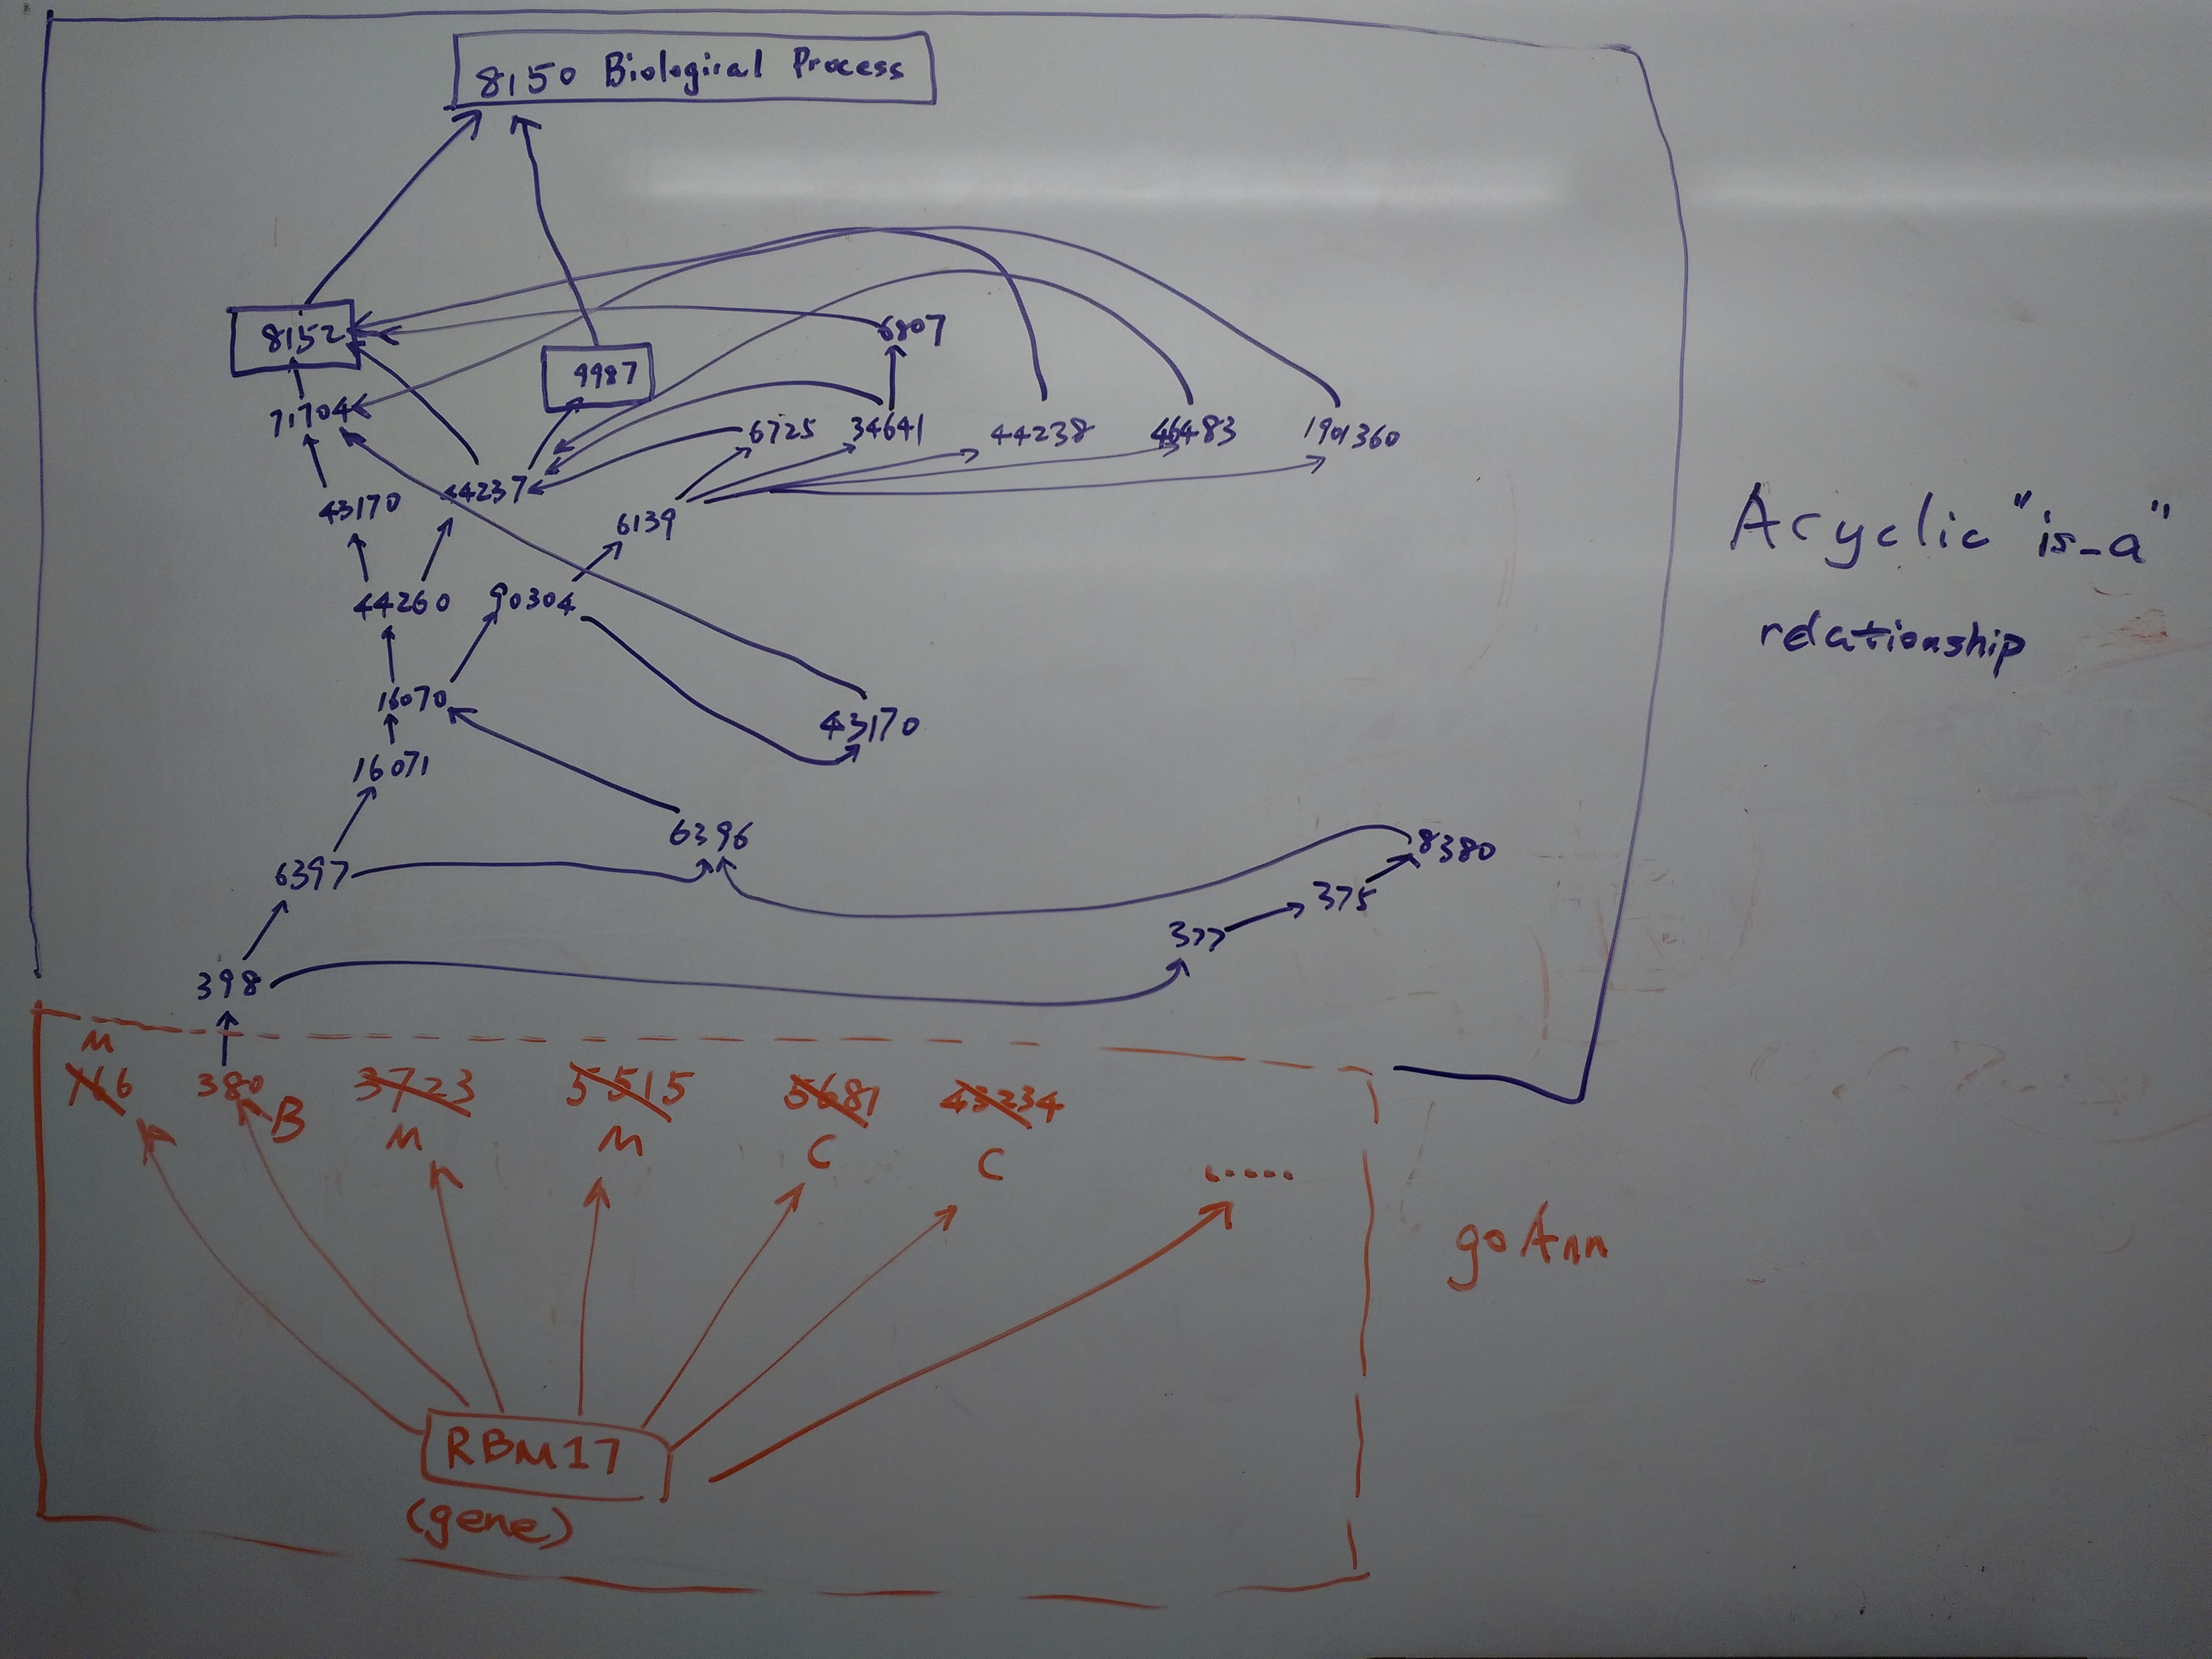 8150 Biological Process
8152
9987
6807
71704
6725
34641
44238
46483
1901360
43170
44237
6139
44260
90304
16070
43170
16071
6396
6397
8380
375
377
398
Acyclic "is_a"
relationship
M
166
380
B
3723
M
5515
M
5681
C
43234
C
.....
goAnn
RBM17
(gene)